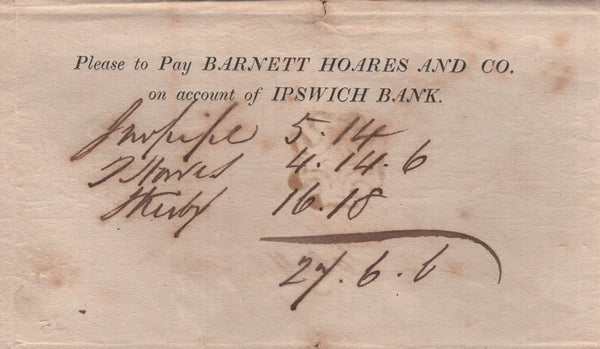 Please to Pay BARNETT HOARES AND CO.
on account of IPSWICH BANK.
5.14
4.14.6
16.18
27.6.6